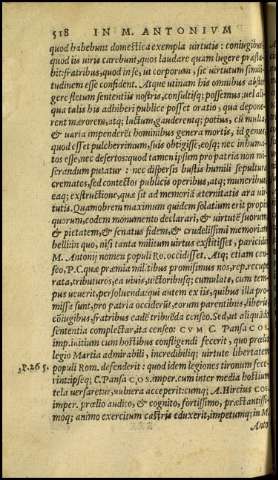 518 IN M. ANTONIVM
quod habebunt domestica exempla virtutis: coniugibus,
quod iis viris carebunt, quos laudare quam lugere præsta-
bit: fratribus, quod in se, ut corporum, sic virtutum simili-
tudinem esse confident. Atque utinam his omnibus abster-
gere fletum sententiis nostris, consultisq́; possemus: uel ali
qua talis his adhiberi publice posset oratio, qua depone-
rent mærorem, atq; luctum, gauderentq́; potius, cum multa
& uaria impenderent hominibus genera mortis, id genus
quod esset pulcherrimum, suis obtigisse, eosq́; nec inhuma-
tos esse, nec desertos, quod tamen ipsum pro patria non mi-
serandum putatur: nec dispersis bustis humili sepultura
crematos, sed contectos publicis operibus, atq; muneribus,
eaq́; exstructione, quæ sit ad memoriã æternitatis ara uir-
tutis. Quamobrem maximum quidem solatium erit propin
quorum, eodem monumento declarari, & uirtutẽ suorum
& pietatem, & senatus fidem, & crudelissimi memoriam
belli: in quo, nisi tanta militum uirtus exstitisset, parricidio
M. Antonij nomen populi Ro. occidisset. Atq; etiam cen-
seo, P. C. quæ præmia militibus promisimus nos, rep. recupe
rata, tributuros, ea uiuis, uictoribusq́; cumulate, cum tem-
pus uenerit, persoluenda: qui autem ex iis, quibus illa pro-
missa sunt, pro patria occiderũt, eorum parentibus, liberis,
cõiugibus, fratribus eadẽ tribuẽda censeo. Sed, ut aliquãdo
sententia complectar, ita censeo: CVM C. Pansa COS.
imp. initium cum hostibus confligendi fecerit, quo prælio
legio Martia admirabili, incredibiliq́; uirtute libertatem
P. 265. populi Rom. defenderit: quod idem legiones tironum fece-
rint: ipseq́; C. Pansa COS. imper. cum inter media hostium
tela uersaretur, uulnera acceperit: cumq́; A. Hircius COS.
imper. prælio audito, & cognito, fortissimo, præstantissi-
moq́; animo exercitum castris eduxerit, impetumq́; in M.
Anto